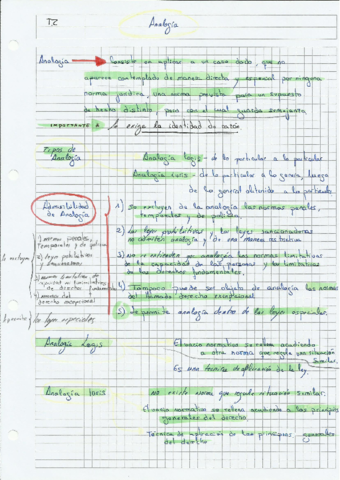 T2
Analogía
Analogía → Consiste en aplicar a un caso dado, que no
aparece contemplado de manera directa y especial por ninguna
norma jurídica, una norma prevista para un supuesto
de hecho distinto, pero con el cual guarda semejanza.
IMPORTANTE Se exige la identidad de razón
Tipos de
Analogía
Analogia legis: de lo particular a lo particular.
Analogia iuris: de lo particular a lo general, luego
de lo general obtenido a lo particular
Admisibilidad
de Analogía
1) Se excluyen de la analogía las normas penales,
temporales y de
2) Las leyes prohibitivas y las leyes sancionadoras
no admiten analogía y de una manera restrictiva
3) No se extienden por analogía las normas limitativas
de la capacidad de las personas y las limitativas
de los derechos fundamentales.
4) Tampoco puede ser objeto de analogía las normas
del llamado derecho excepcional
5) Se permite analogía dentro de las leyes especiales.
Se excluyen
1) normas penales,
temporales y de
2) leyes prohibitivas
y sancionadoras
3) normas limitativas de
capacidad
de derechos fundamentales
4) normas del
derecho excepcional
las leyes especiales
Analogía Legis
El vacío normativo se rellena acudiendo
a otra norma que regula una situación
similar.
Es una técnica de de la ley.
Analogía Iuris
No existe norma que regule situación similar.
El vacío normativo se rellena acudiendo a los principios
generales del derecho.
Técnica de aplicación de los principios generales
del derecho